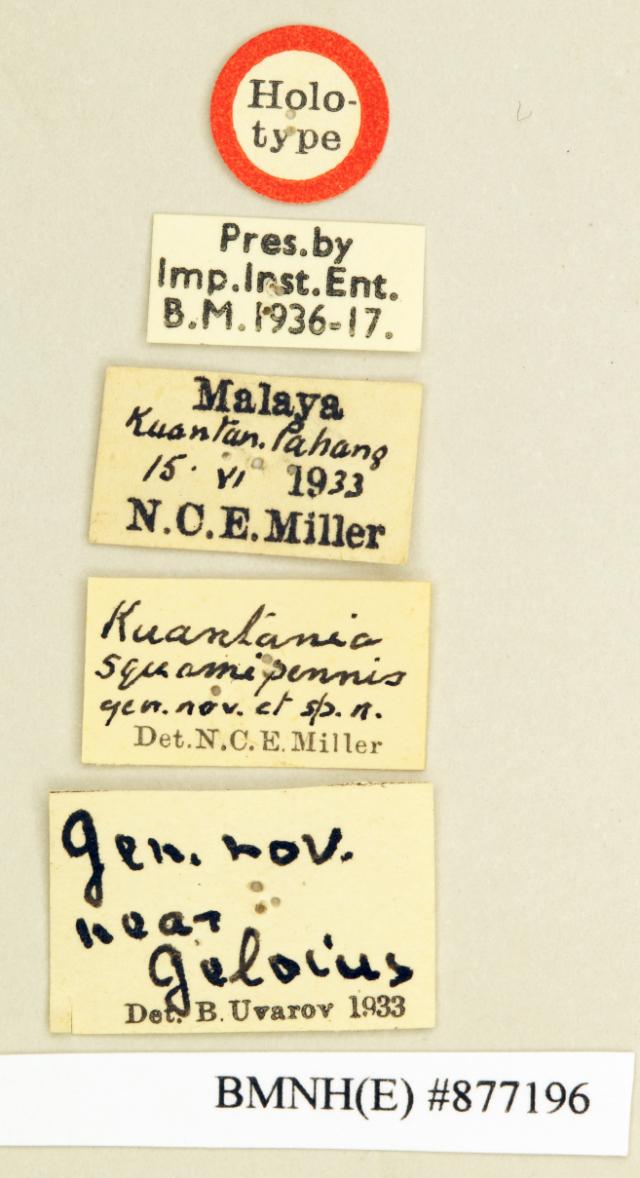 Holo-
type
Pres.by
Imp.Inst.Ent.
B.M.1936-17.
Malaya
Kuantan. Pahang
15. VI 1933
N.C.E.Miller
Kuantania
squamipennis
gen.nov. et sp. n.
Det.N.C.E.Miller
Gen. nov.
near
Geloius
Det. B.Uvarov 1933
BMNH(E) #877196